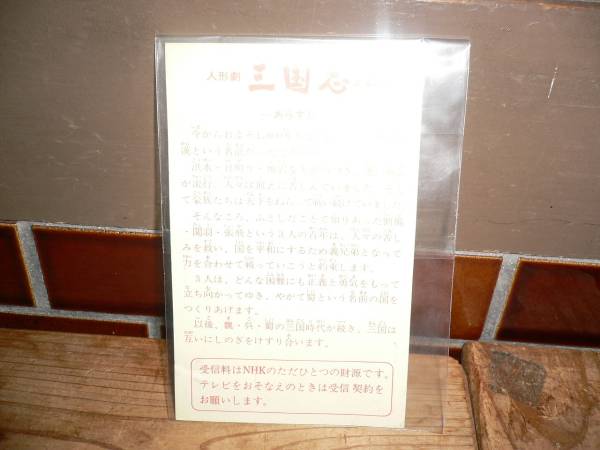 人形劇 三国志
―あらすじ
今から
漢という名前
洪水・日照り・地震など
が流行し、人々は飢えに苦しんでいました。そし
て豪族たちは天下をねらって戦い続けていました
そんなころ、ふとしたことで知りあった劉備
・関羽・張飛という3人の青年は、人々の苦し
みを救い、国を平和にするため義兄弟となって
力を合わせて戦っていこうと約束します。
3人は、どんな困難にも正義と勇気をもって
立ち向かってゆき、やがて蜀という名前の国を
つくりあげます。
以後、魏・呉・蜀の三国時代が続き、三国は
互いにしのぎをけずり合います。
受信料はNHKのただひとつの財源です。
テレビをおそなえのときは受信契約を
お願いします。